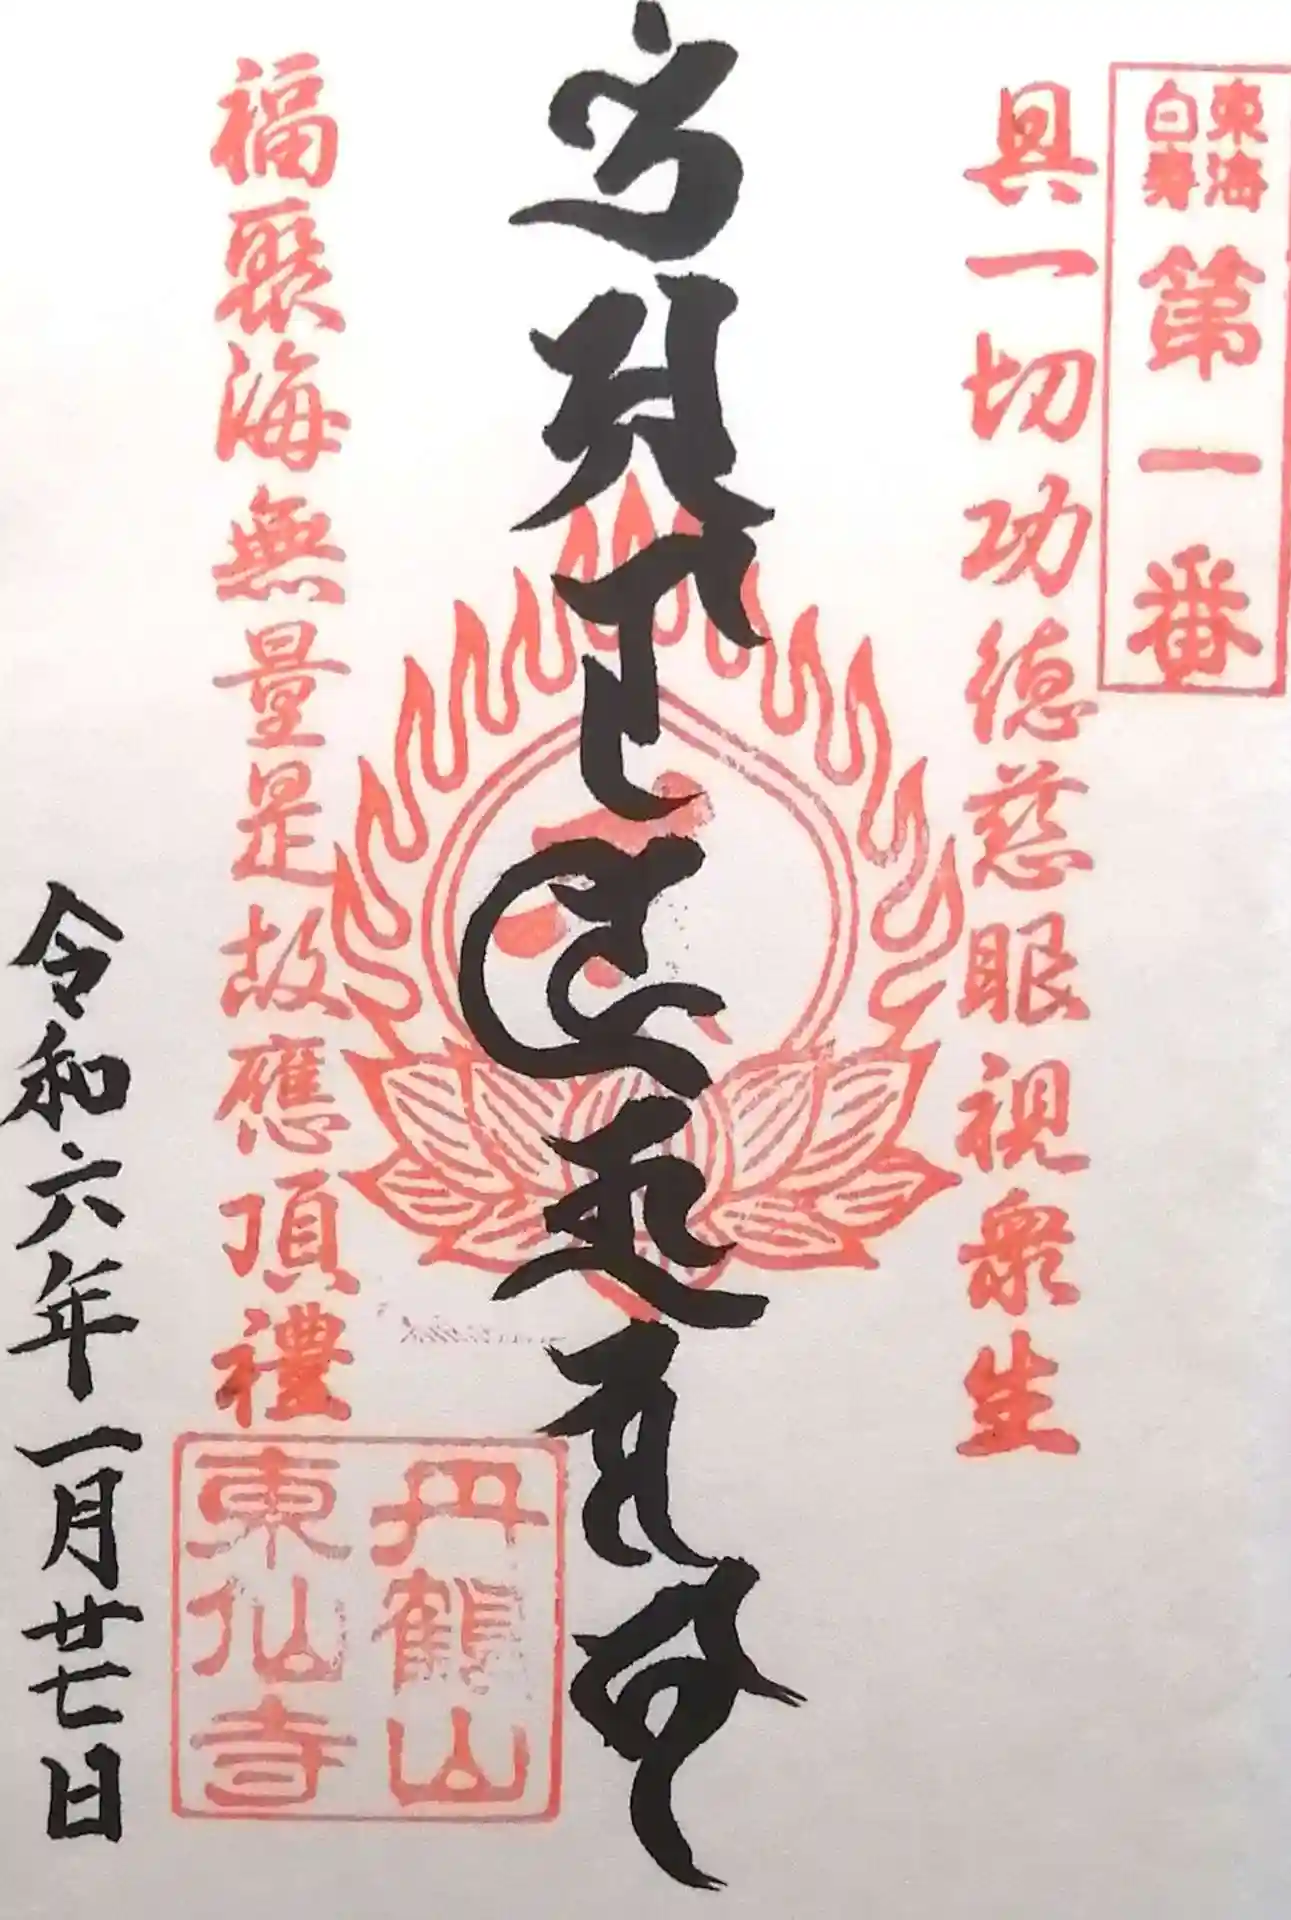 東海
白寿
第一番
具一切功徳慈眼視衆生
福聚海無量是故應頂禮
丹鶴山
東仙寺
令和六年一月廿七日